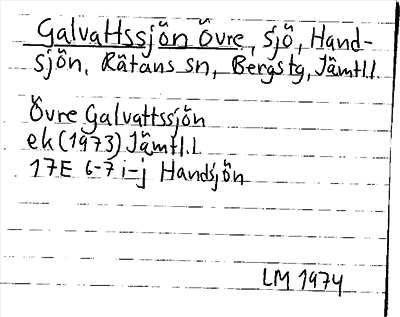 Galvattssjön Övre, sjö, Hand-
sjön, Rätans sn, Bergs tg, Jämtl.l.
Övre Galvattssjön
ek (1973) Jämtl.l
17E 6-7 i-j Handsjön
LM 1974